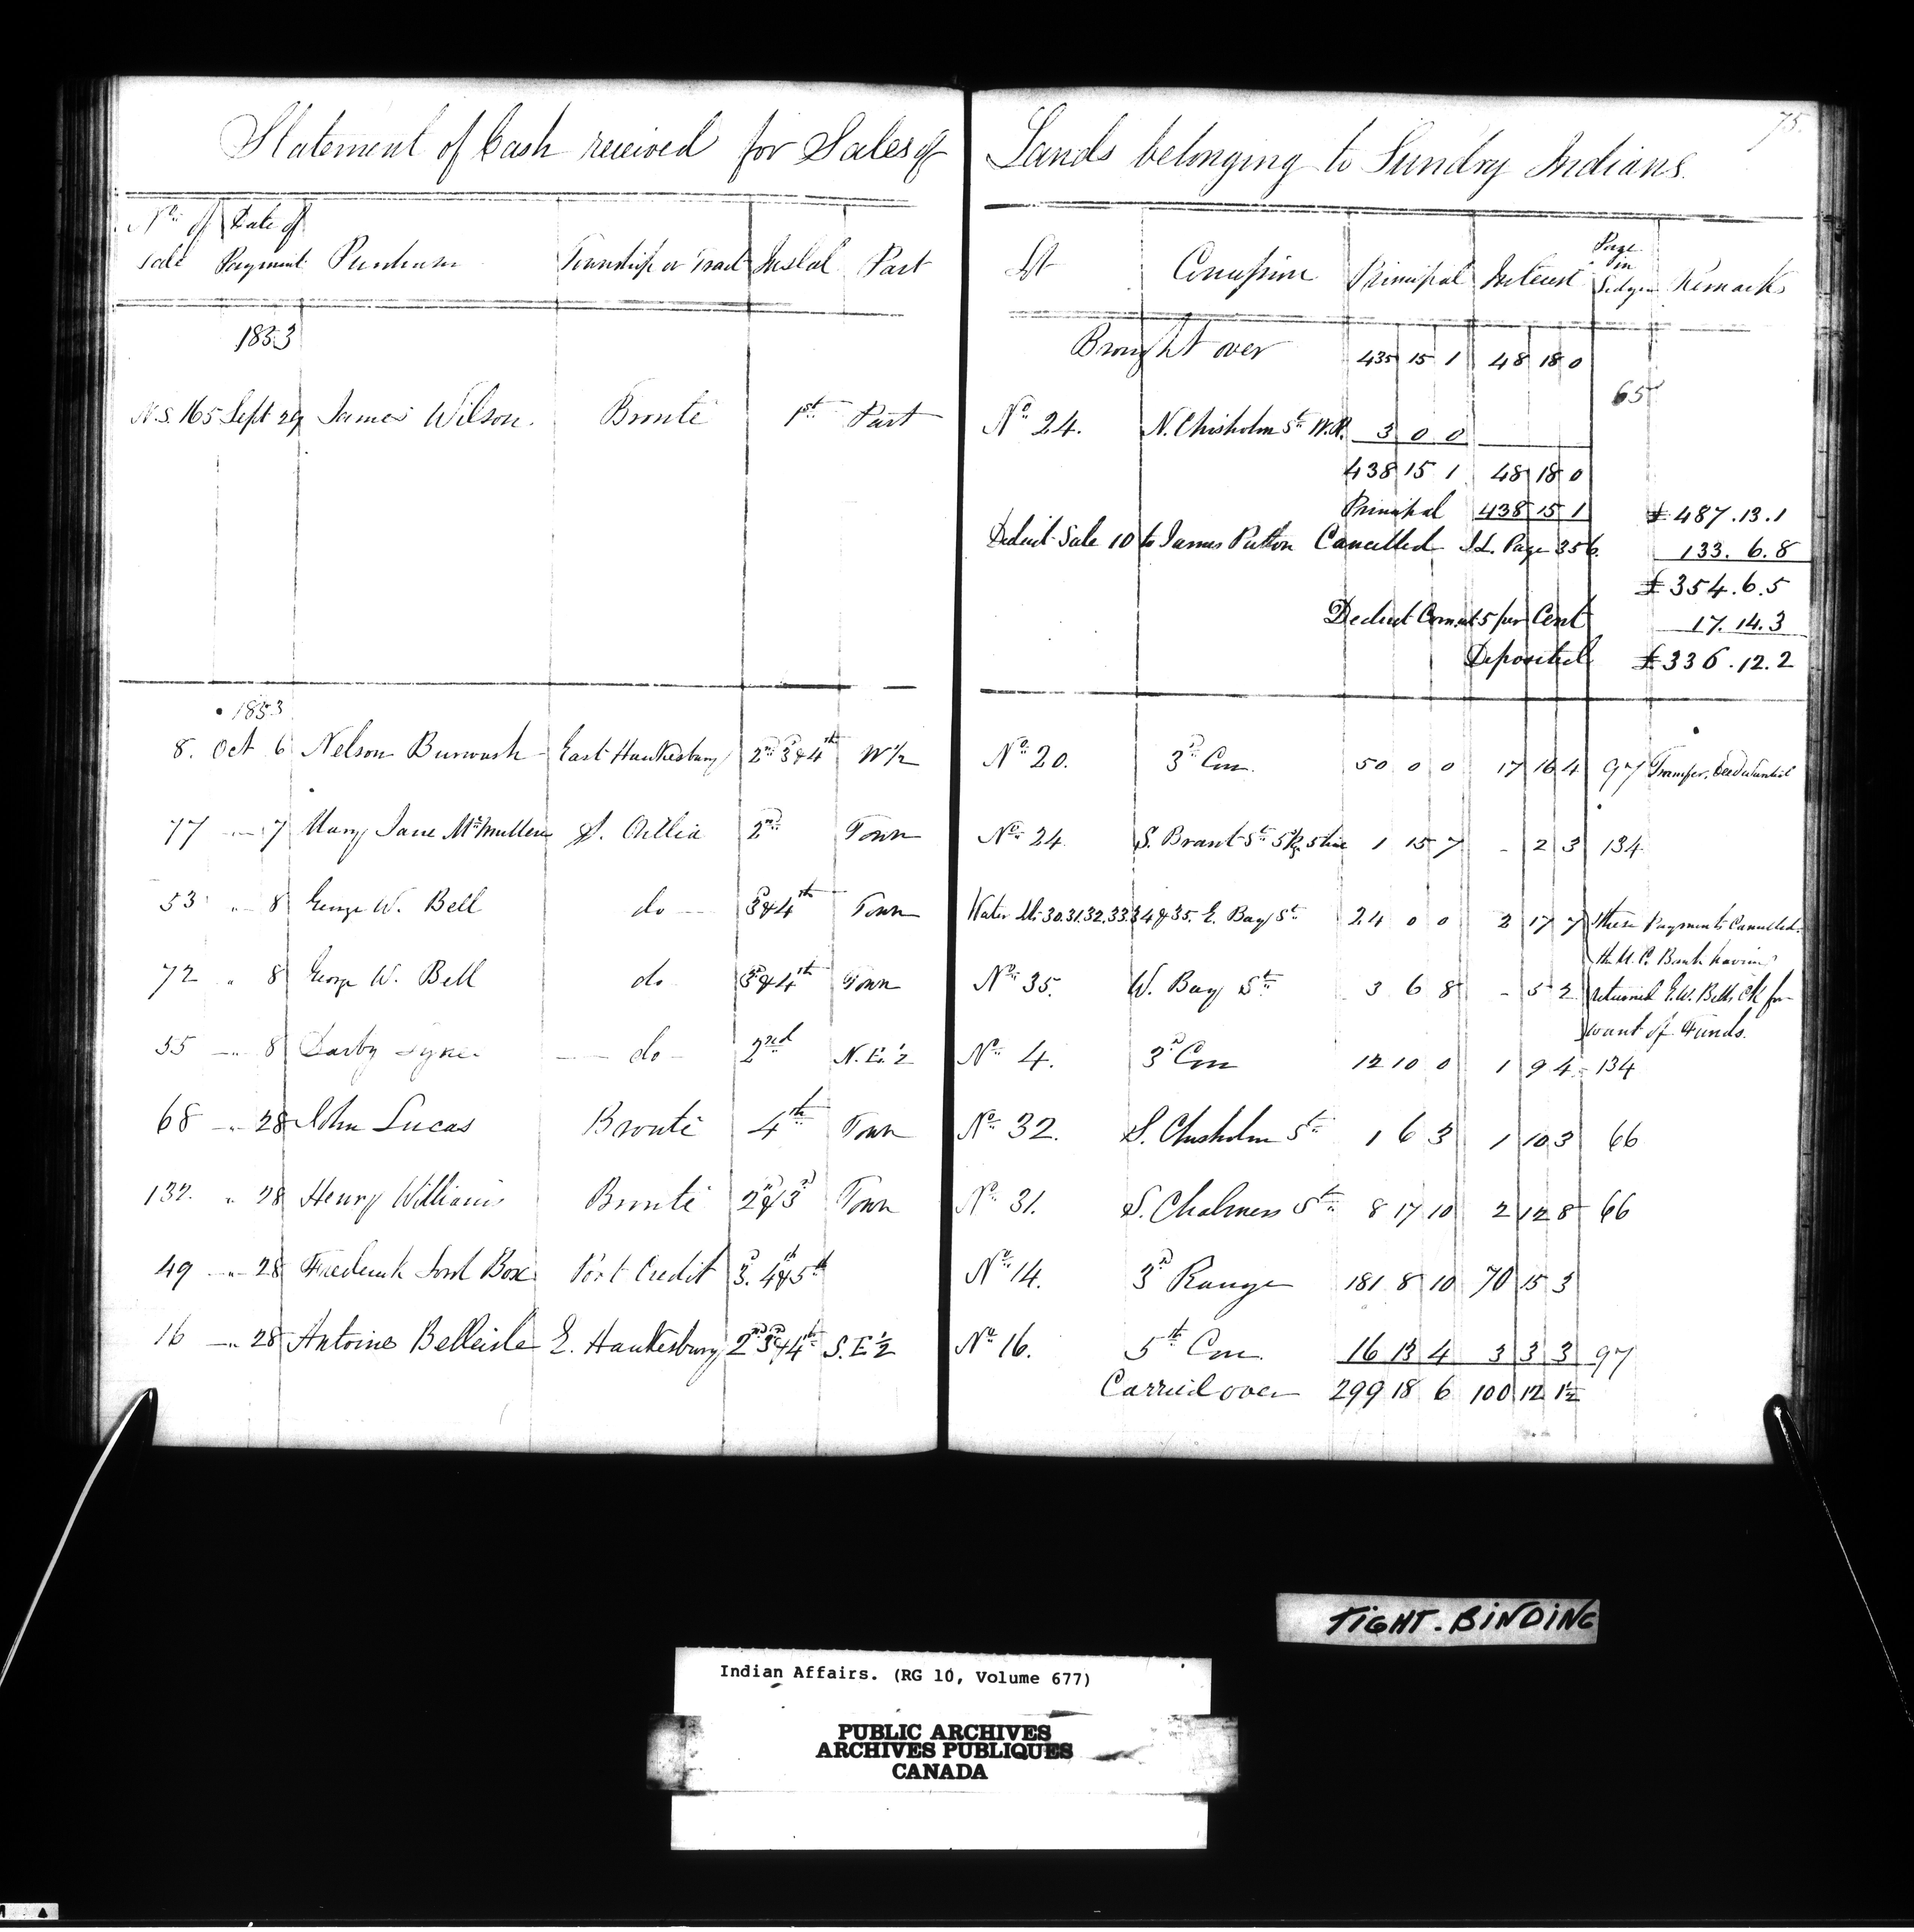 75.
Statement of Cash received for Sales of Lands belonging to Sundry Indians.
No. of sale Date of Payment Purchaser Township or Tract Instal Part Lot Concession Principal Interest Page in Ledger Remarks
1853 Brought over 435 15 1 48 18 0
N.S. 165 Sept 29 James Wilson. Bronte 1st Part No 24. N. Chisholm St W.R. 3 0 0 65
438 15 1 48 18 0
Principal 438 15 1 £487.13.1
Deduct Sale 10 to James Patton Cancelled I.L. Page 356. 133.6.8
£354.6.5
Deduct Comn at 5 per Cent 17.14.3
Deposited £336.12.2
1853
8. Oct 6 Nelson Burwash East Hawkesbury 2nd 3d & 4th W 1/2 No 20. 3d Con. 50 0 0 17 16 4 97 Transfer.
77 " 7 Mary Jane McMullen S. Orillia 2nd Town No 24 S. Brant St 1 15 7 - 2 3 134
53 " 8 George W. Bell do 3d & 4th Town Water Lots 30.31.32.33.34 & 35. E. Bay St 24 0 0 2 17 7 These Payments Cancelled.
the U.C. Bank having
72 " 8 George W. Bell do 3d & 4th Town No 35. W. Bay St 3 6 8 - 5 2 returned G.W. Bell's Ck for
want of Funds.
55 " 8 Darby do 2nd N.E. 1/2 No 4. 3d Con 12 10 0 1 9 4 134
68 " 28 John Lucas Bronte 4th Town No 32. S. Chisholm St 1 6 3 1 10 3 66
132. " 28 Henry Williams Bronte 2d & 3d Town No 31. S. Chalmers St 8 17 10 2 12 8 66
49 " 28 Frederick Lord Box Port Credit 3d. 4th & 5th No 14. 3d Range 181 8 10 70 15 3
16 " 28 Antoine Belleisle E. Hawkesbury 2nd 3d & 4th S.E 1/2 No 16. 5th Con. 16 13 4 3 3 3 97
Carried over 299 18 6 100 12 1 1/2
TIGHT. BINDING
Indian Affairs. (RG 10, Volume 677)
PUBLIC ARCHIVES
ARCHIVES PUBLIQUES
CANADA